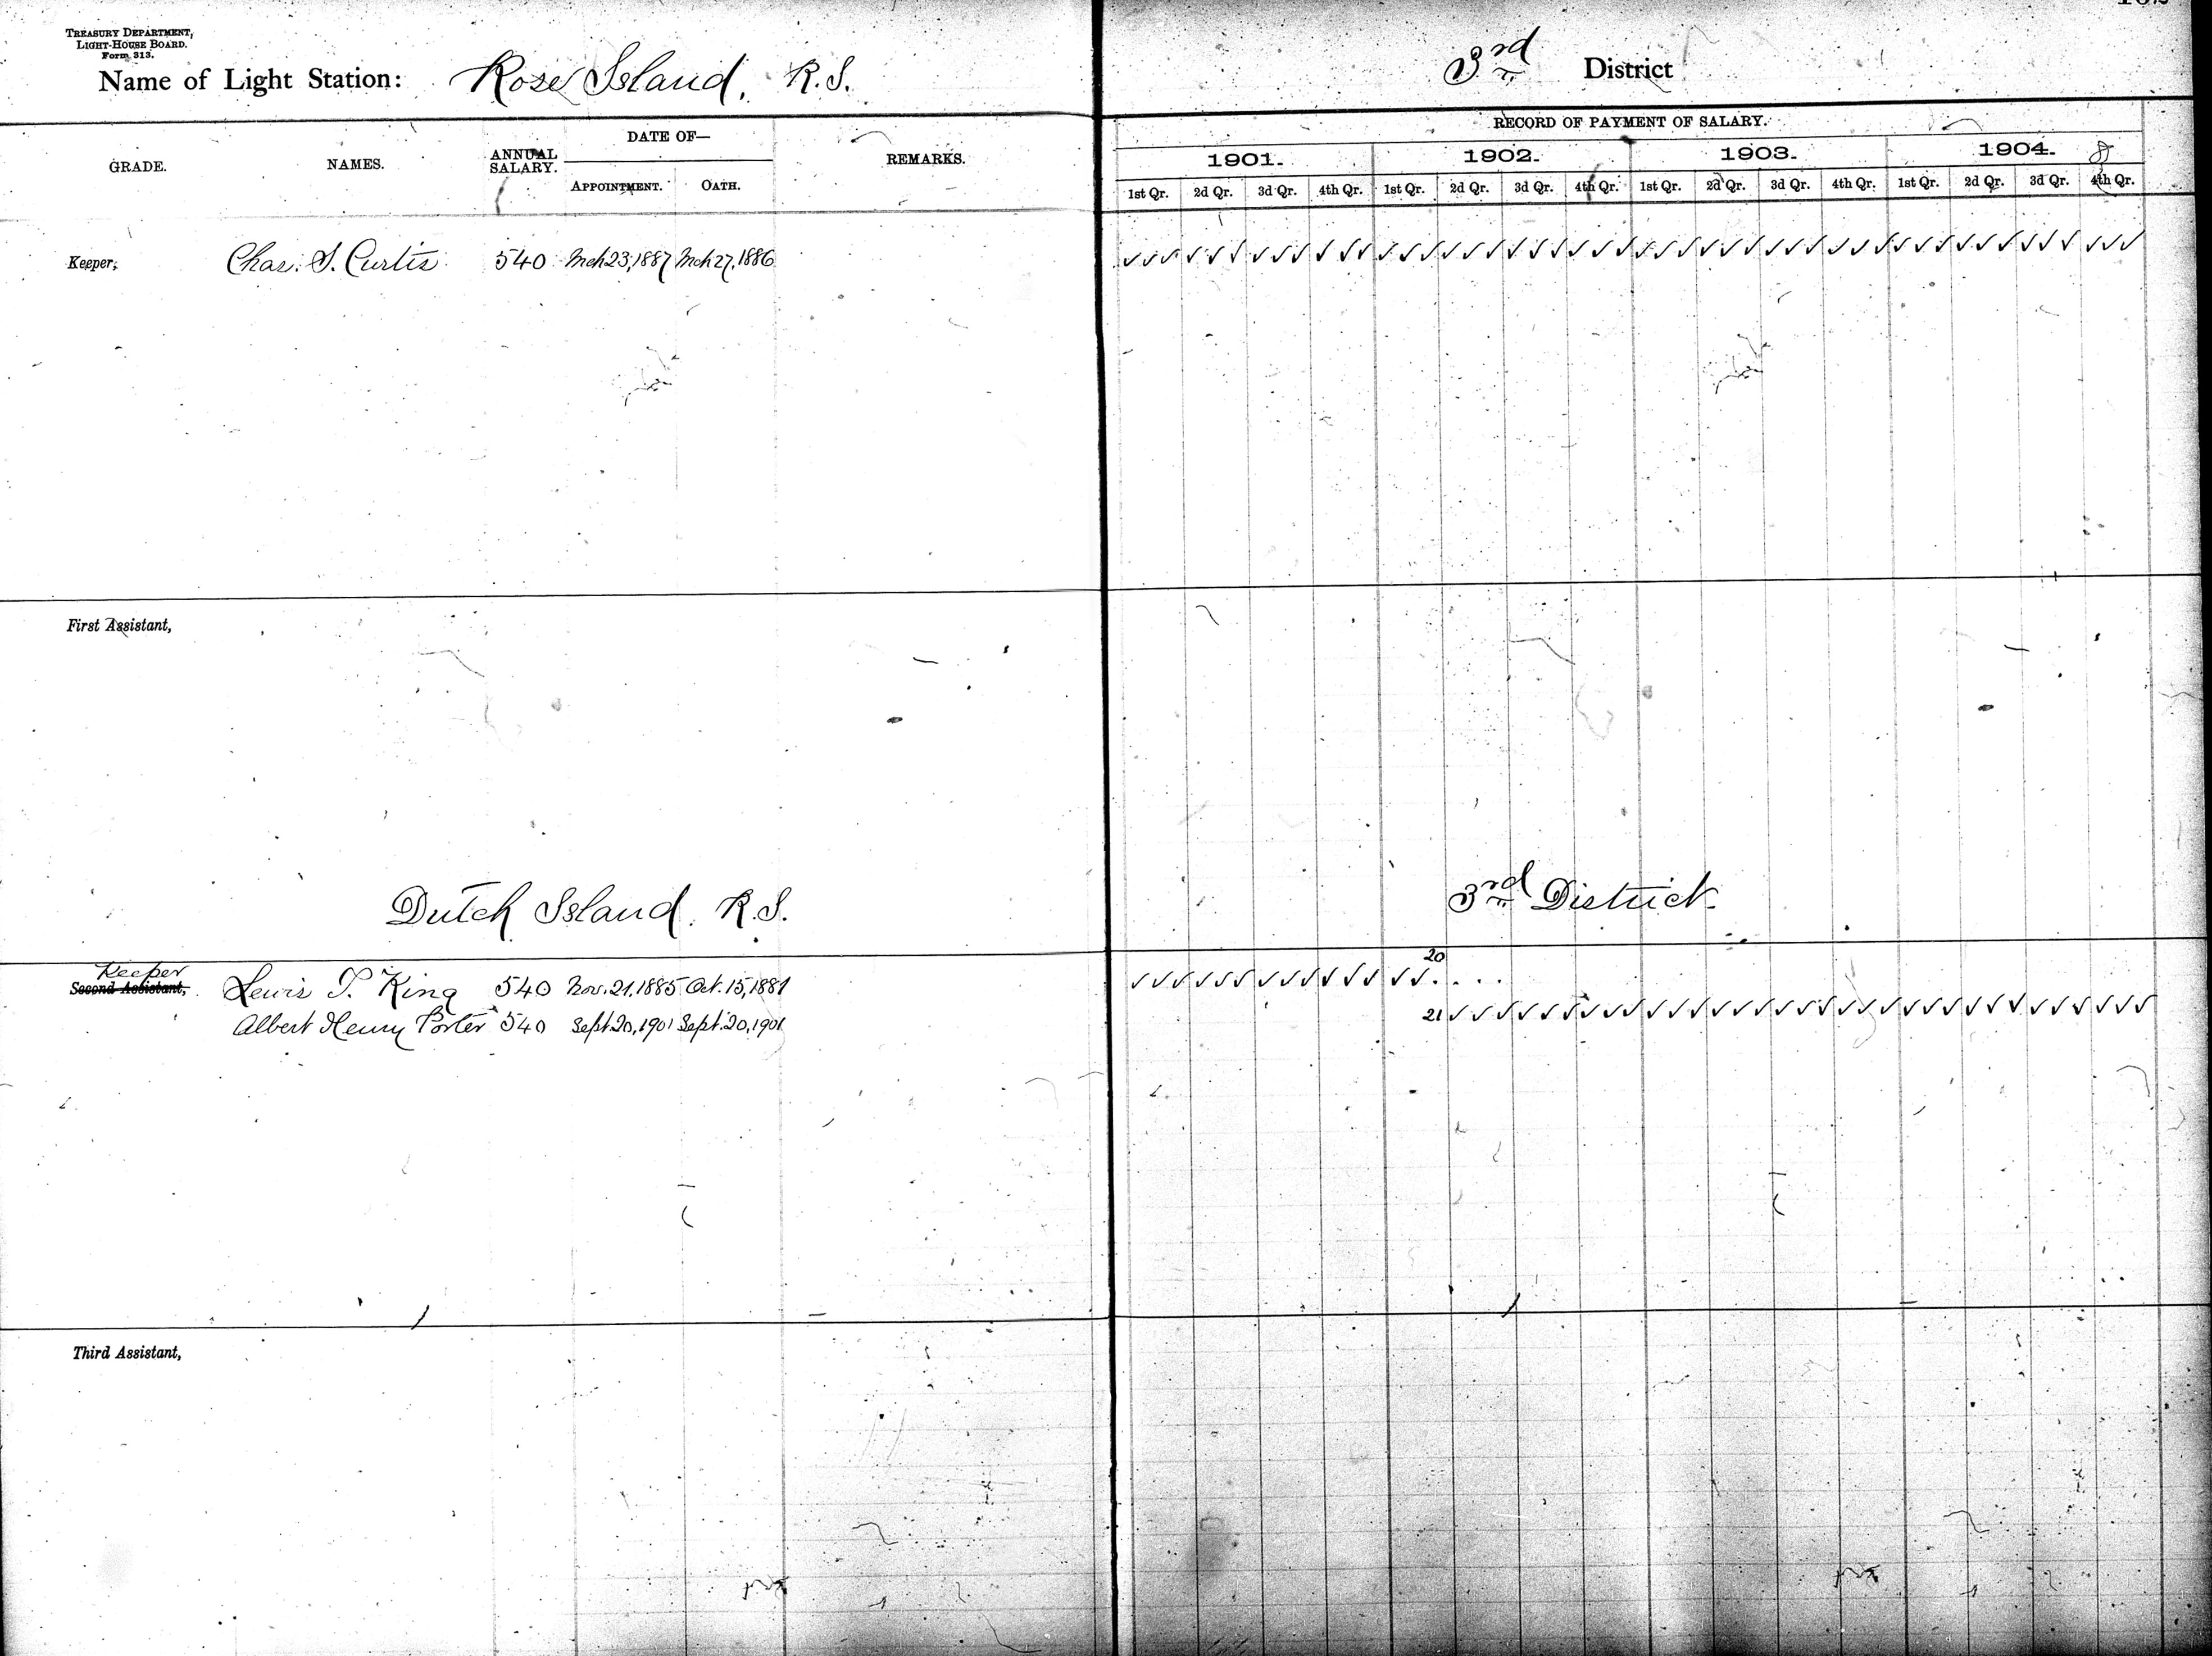 TREASURY DEPARTMENT,
LIGHT-HOUSE BOARD.
Form 313.
Name of Light Station: Rose Island, R.I.
3rd District
RECORD OF PAYMENT OF SALARY.
GRADE. NAMES. ANNUAL SALARY. DATE OF— REMARKS.
APPOINTMENT. OATH.
1901. 1902. 1903. 1904.
1st Qr. 2d Qr. 3d Qr. 4th Qr. 1st Qr. 2d Qr. 3d Qr. 4th Qr. 1st Qr. 2d Qr. 3d Qr. 4th Qr. 1st Qr. 2d Qr. 3d Qr. 4th Qr.
Keeper, Chas. S. Curtis 540 Mch 23, 1887 Mch 27, 1886 ✓✓✓✓✓✓✓✓✓✓✓✓✓✓✓✓✓✓✓✓✓✓✓✓✓✓✓✓✓✓✓✓✓✓✓✓✓✓✓✓✓✓✓✓✓✓✓✓
First Assistant,
Dutch Island, R.I. 3rd District.
20
Keeper
Second Assistant, Lewis T. King 540 Nov. 21, 1885 Oct. 15, 1881 ✓✓✓✓✓✓✓✓✓✓✓✓✓✓. . . .
Albert Henry Porter 540 Sept 20, 1901 Sept. 20, 1901 21 ✓✓✓✓✓✓✓✓✓✓✓✓✓✓✓✓✓✓✓✓✓✓✓✓✓✓✓✓✓✓✓✓✓
Third Assistant,